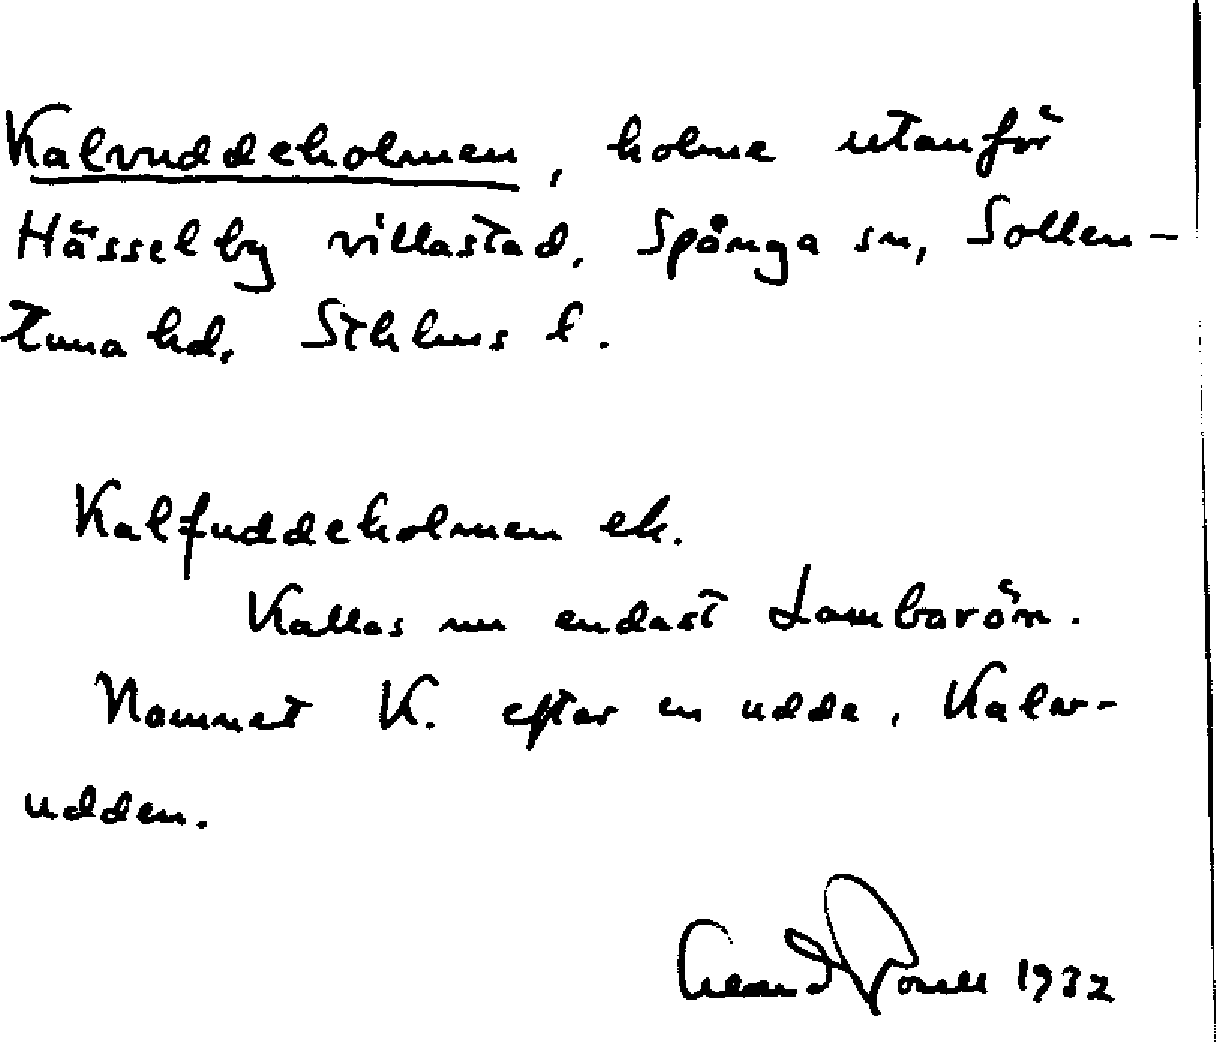 Kalvuddeholmen, holme utanför
Hässelby villastad, Spånga sn, Sollen-
tuna hd, Sthlms l.
Kalfuddeholmen ek.
Kallas nu endast Lambarön.
Namnet K. efter en udde, Kalv-
udden.
1932